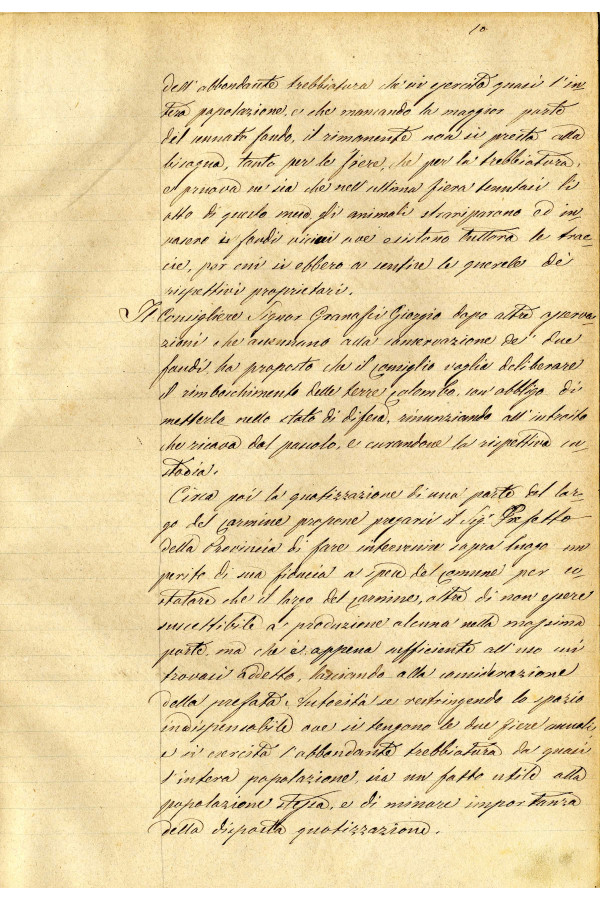 10
dell'abbondante trebbiatura che vi esercita quasi l'in-
tera popolazione, e che mancando la maggior parte
del unnato fondo, il rimanente non si presta alla
bisogna, tanto per le fiere, che per la trebbiatura,
e pruova ne sia che nell'ultima fiera tenutasi li
otto di questo mese, gli animali straripano ed in-
vasero i fondi vicini ove esistono tuttora le trac-
cie, per cui si ebbero a sentire le querele de'
rispettivi proprietari.
Il Consigliere Signor Granassi Giorgio dopo altre osserva-
zioni che accennano alla conservazione de' due
fondi, ha proposto che il Consiglio voglia deliberare
il rimboschimento delle terre Colombo, con obbligo di
metterlo nello stato di difesa, rinunziando all'introito
che ricava dal pascolo, e curandone la rispettiva cu-
stodia.
Circa poi la quotizzazione di una parte del lar-
go del Carmine propone pregarsi il Sig.r Prefetto
della Provincia di fare intervenire sopra luogo un
perito di sua fiducia a spese del Comune per co-
statare che il largo del Carmine, oltre di non essere
suscettibile a produzione alcuna nella massima
parte, ma che è appena sufficiente all'uso cui
trovasi addetto, lasciando alla considerazione
della prefata Autorità se restringendo lo spazio
indispensabile ove si tengono le due fiere annuali,
e si esercita l'abbondante trebbiatura da quasi
l'intera popolazione, sia un fatto utile alla
popolazione stessa, e di minore importanza
della disposta quotizzazione.